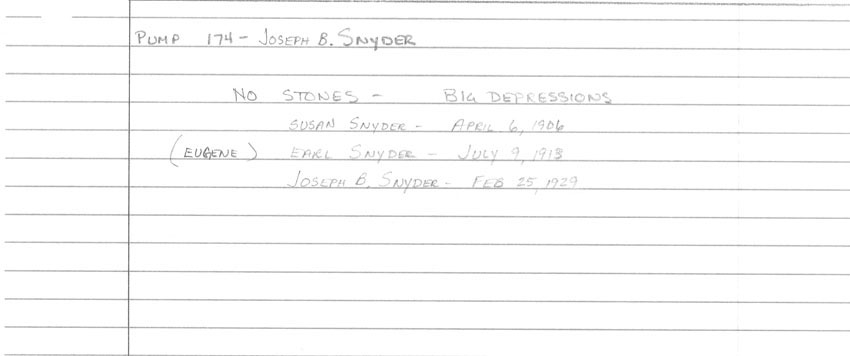 PUMP 174 - JOSEPH B. SNYDER
NO STONES - BIG DEPRESSIONS
SUSAN SNYDER - APRIL 6, 1906
(EUGENE) EARL SNYDER - JULY 9, 1913
JOSEPH B. SNYDER - FEB 25, 1929